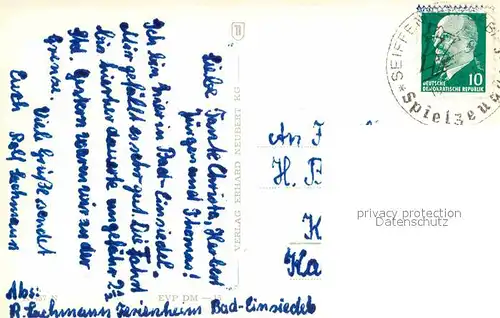 Liebe Tante Christa, Herbert
Jürgen und Thomas!
Ich bin hier in Bad-Einsiedel.
Mir gefällt es sehr gut. Die Fahrt
bis hierher dauerte ungefähr 2½
Std. Gestern waren wir an der
Grenze. Viel Grüße sendet
Euch Rolf Lachmann
Abs:
R. Lachmann Ferienheim Bad-Einsiedel
VERLAG ERHARD NEUBERT KG
EVP DM
An F
H. B
K
Ka
privacy protection
Datenschutz
SEIFFEN
Spielzeug
10
DEUTSCHE
DEMOKRATISCHE REPUBLIK